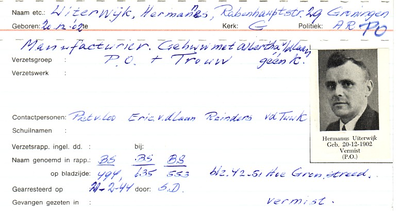 Naam etc.: Uiterwijk, Hermanes, Rabenhauptstr. 29 Groningen
Geboren: 20.12.02 te Kerk: G Politiek: AR PO
Manufacturier. Gehuwd met Albertha v. Laan
Verzetsgroep : P.O. + Trouw geen k.
Verzetswerk :
Contactpersonen: Piet v. Leo Eric v.d Laan Reinders
Schuilnaam :
Verzetsrapp. ingel. dd. : bij:
Naam genoemd in rapp.: BS BS BS
op bladzijde: 494, 635 553 blz. 42.51
Gearresteerd op 21-2-44 door: S.D.
Gevangen gezeten in : vermist.
Hermanus Uiterwijk
Geb. 20-12-1902
Vermist
(P.O.)